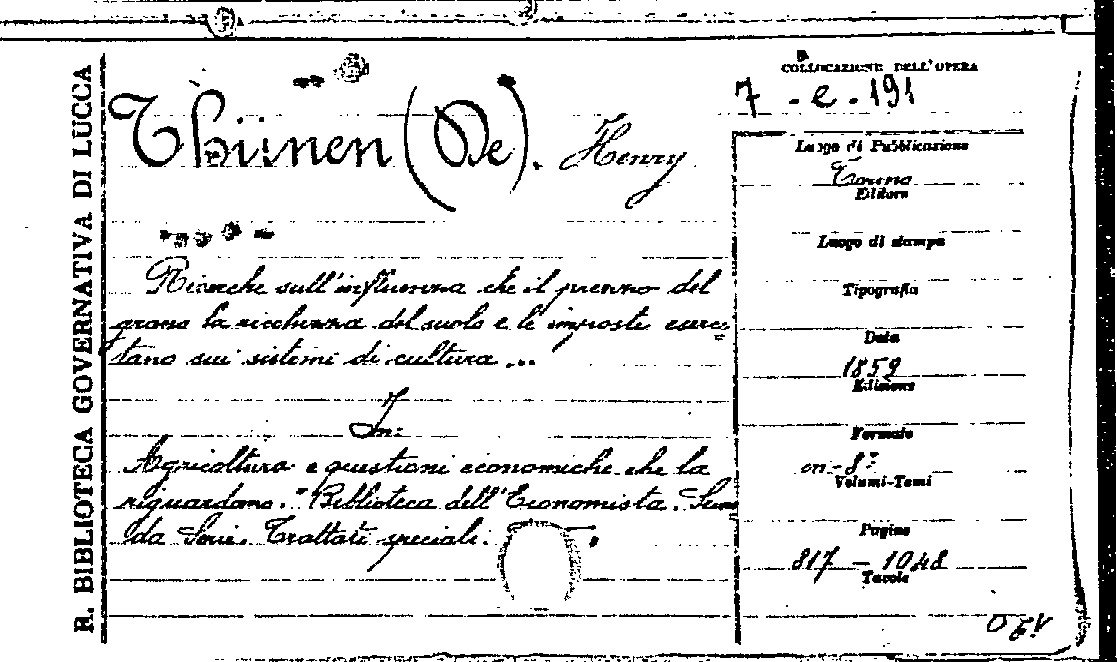 R. BIBLIOTECA GOVERNATIVA DI LUCCA
COLLOCAZIONE DELL'OPERA
7 - e - 191
Thünen (De). Henry
Ricerche sull'influenza che il prezzo del
grano la ricchezza del suolo e le imposte eserci=
tano sui sistemi di cultura ...
In:
Agricoltura e questioni economiche che la
riguardano. "Biblioteca dell'Economista.
da Serie. Trattati speciali.
Luogo di Pubblicazione
Torino
Editore
Luogo di stampa
Tipografia
Data
1859
Edizione
Formato
in-8º
Volumi-Tomi
Pagine
817 - 1048
Tavole